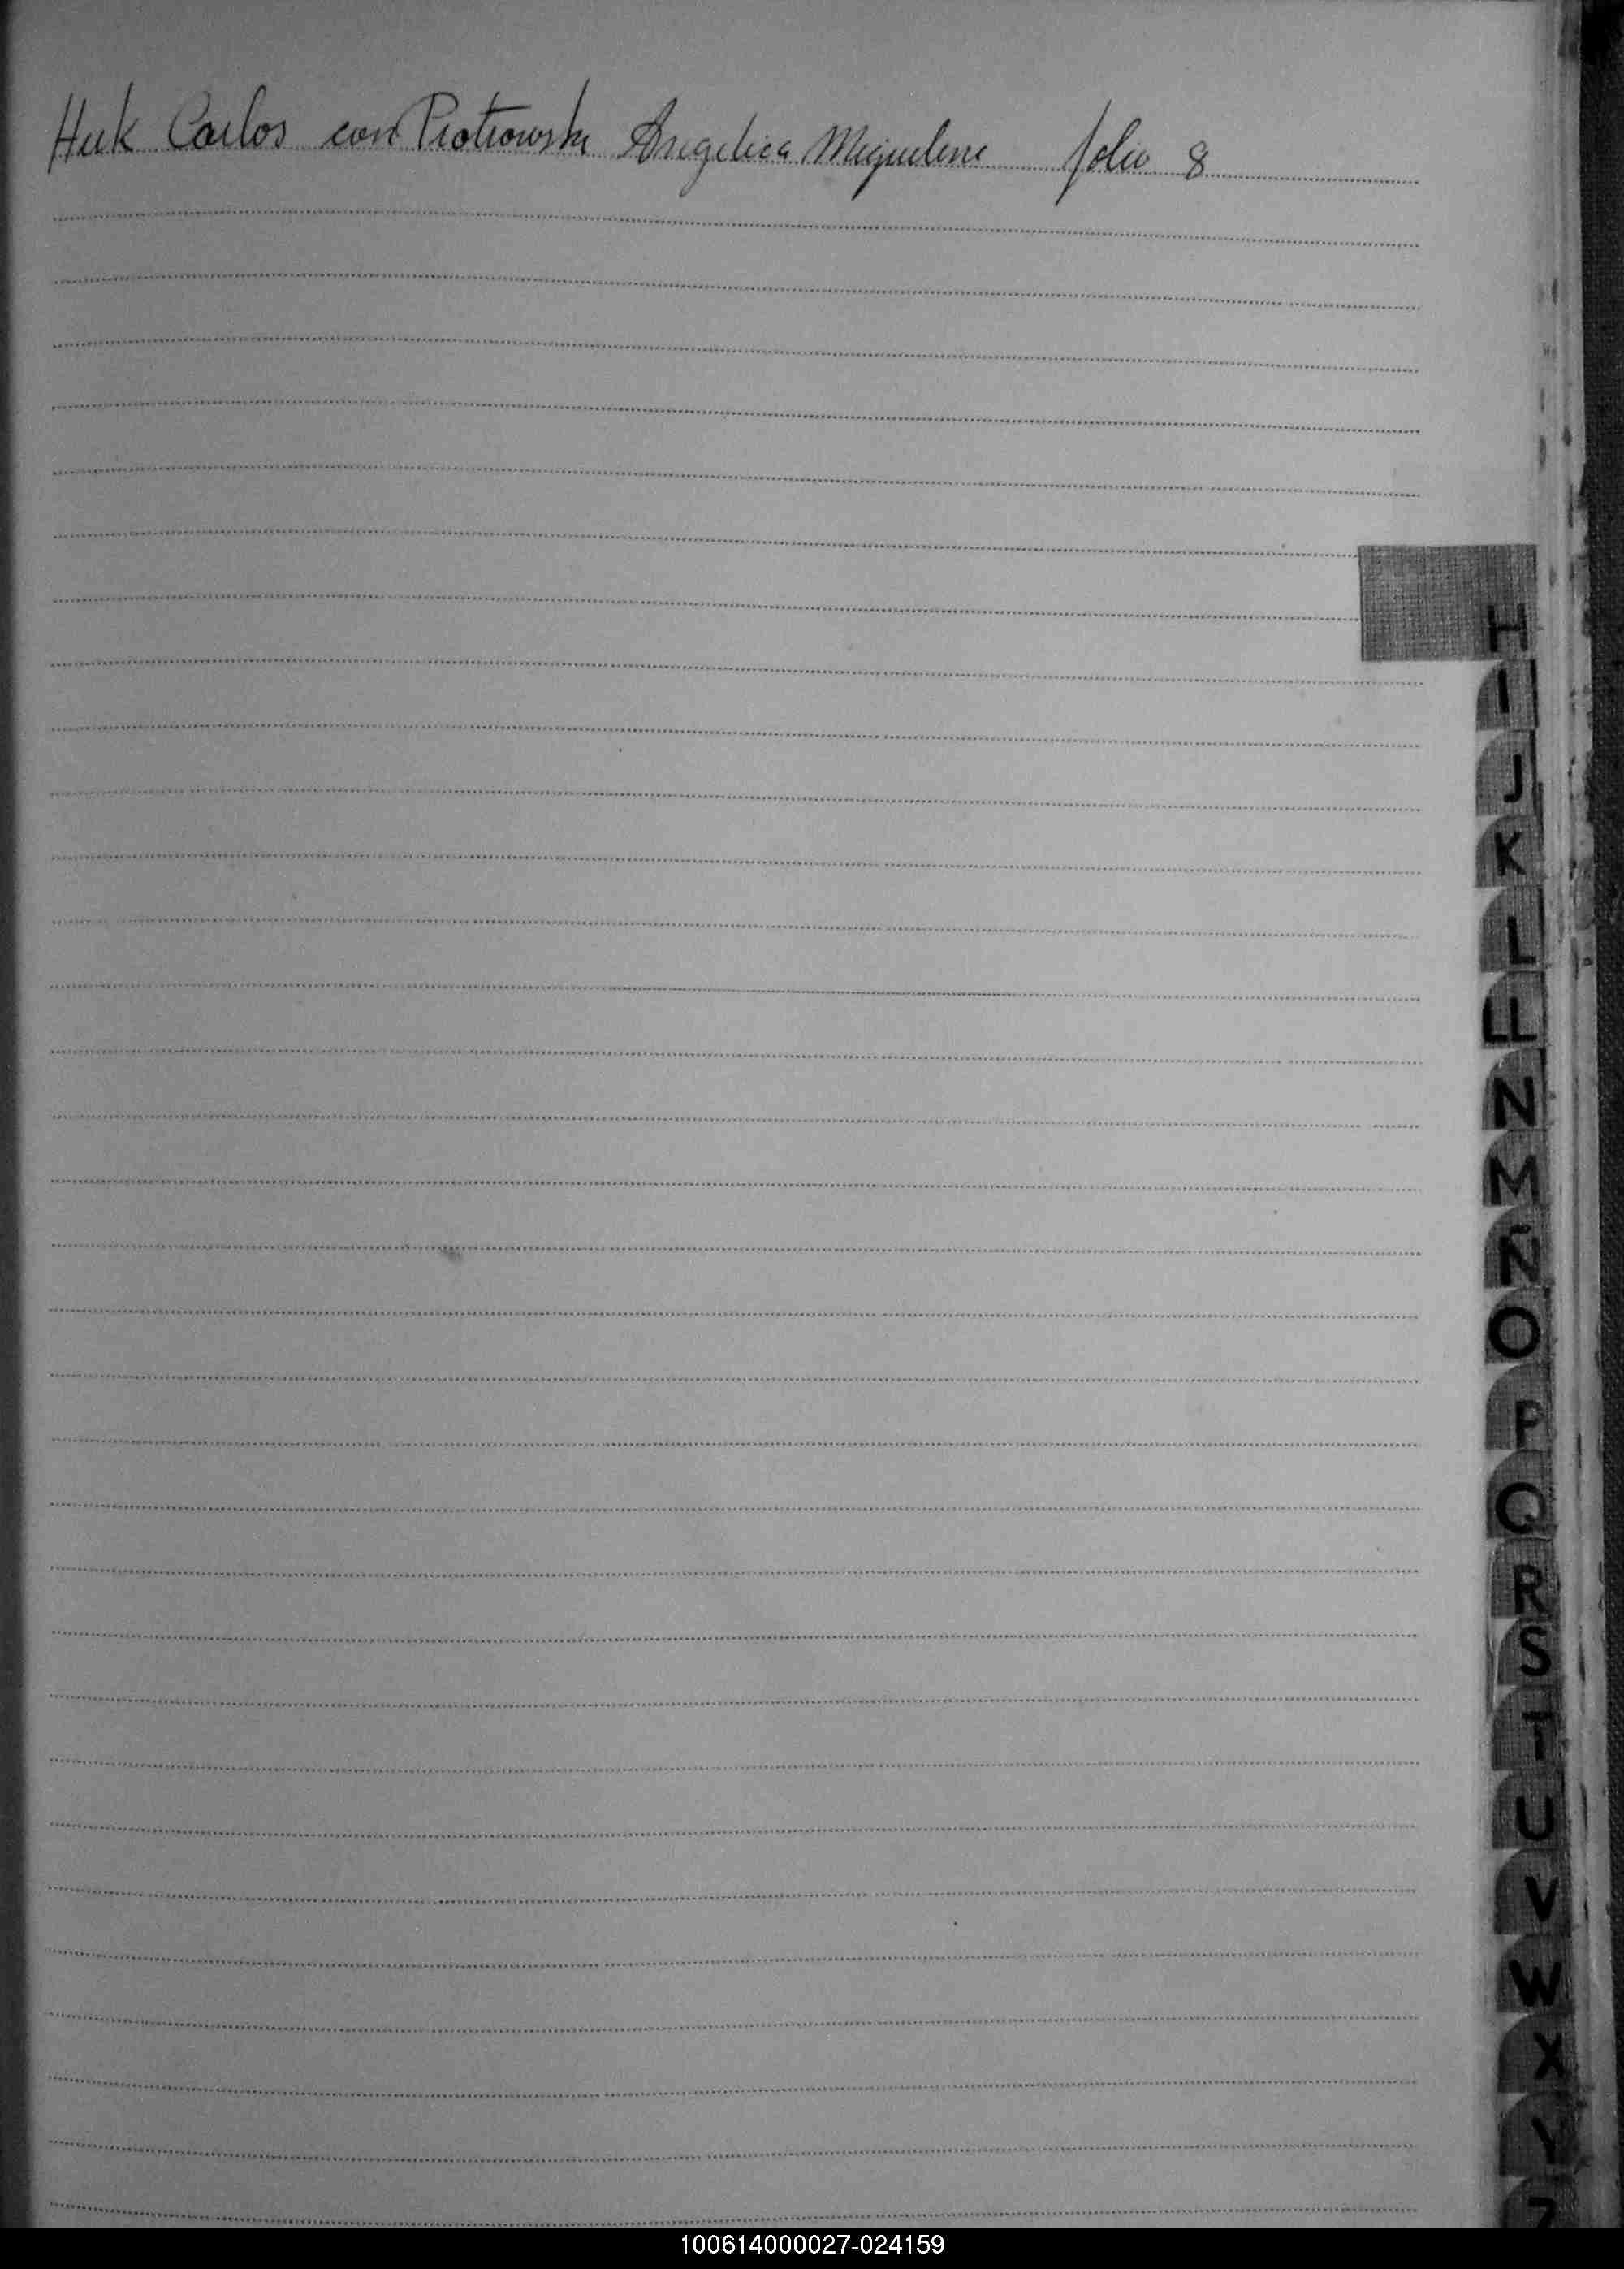 Huk Carlos con Piotrowski Angelica Miguelina folio 8
H
I
J
K
L
LL
N
M
Ñ
O
P
Q
R
S
T
U
V
W
X
Y
Z
100614000027-024159